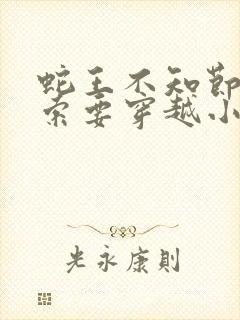 蛇王不知節
索要穿越小
光永康則